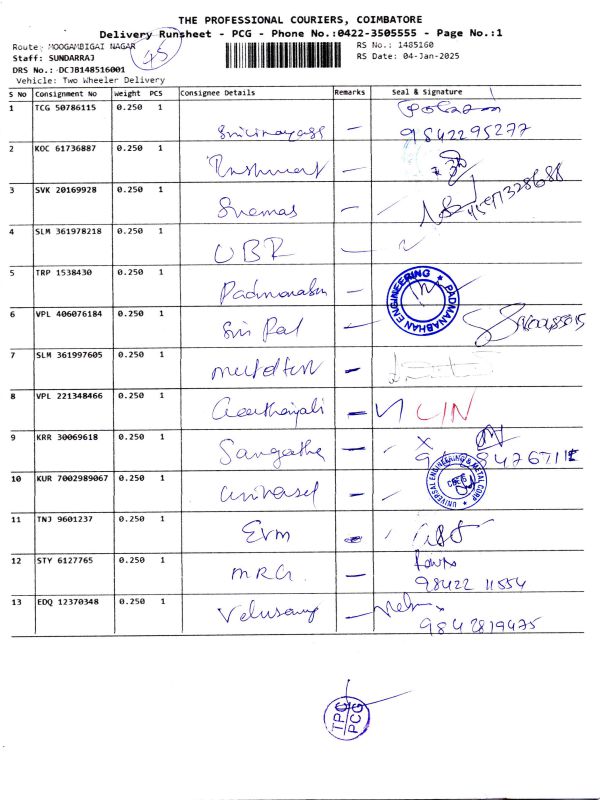 THE PROFESSIONAL COURIERS, COIMBATORE
Delivery Runsheet - PCG - Phone No.:0422-3505555 - Page No.:1
Route: MOOGAMBIGAI NAGAR
45
RS No.: 1485160
Staff: SUNDARRAJ
RS Date: 04-Jan-2025
DRS No.: DCJB148516001
Vehicle: Two Wheeler Delivery
S No Consignment No Weight PCS Consignee Details Remarks Seal & Signature
1 TCG 50786115 0.250 1 9842295277
2 KOC 61736887 0.250 1
3 SVK 20169928 0.250 1
4 SLM 361978218 0.250 1 UBR
5 TRP 1538430 0.250 1 PADMANABHAN ENGINEERING
6 VPL 406076184 0.250 1 Sri Pal
7 SLM 361997605 0.250 1
8 VPL 221348466 0.250 1
9 KRR 30069618 0.250 1 Sangatha
10 KUR 7002989067 0.250 1 universel UNIVERSAL ENGINEERING & METAL CORP
11 TNJ 9601237 0.250 1 Evm
12 STY 6127765 0.250 1 MRG 98422 11554
13 EDQ 12370348 0.250 1 Velusamy 9842819475
TPC
PCG